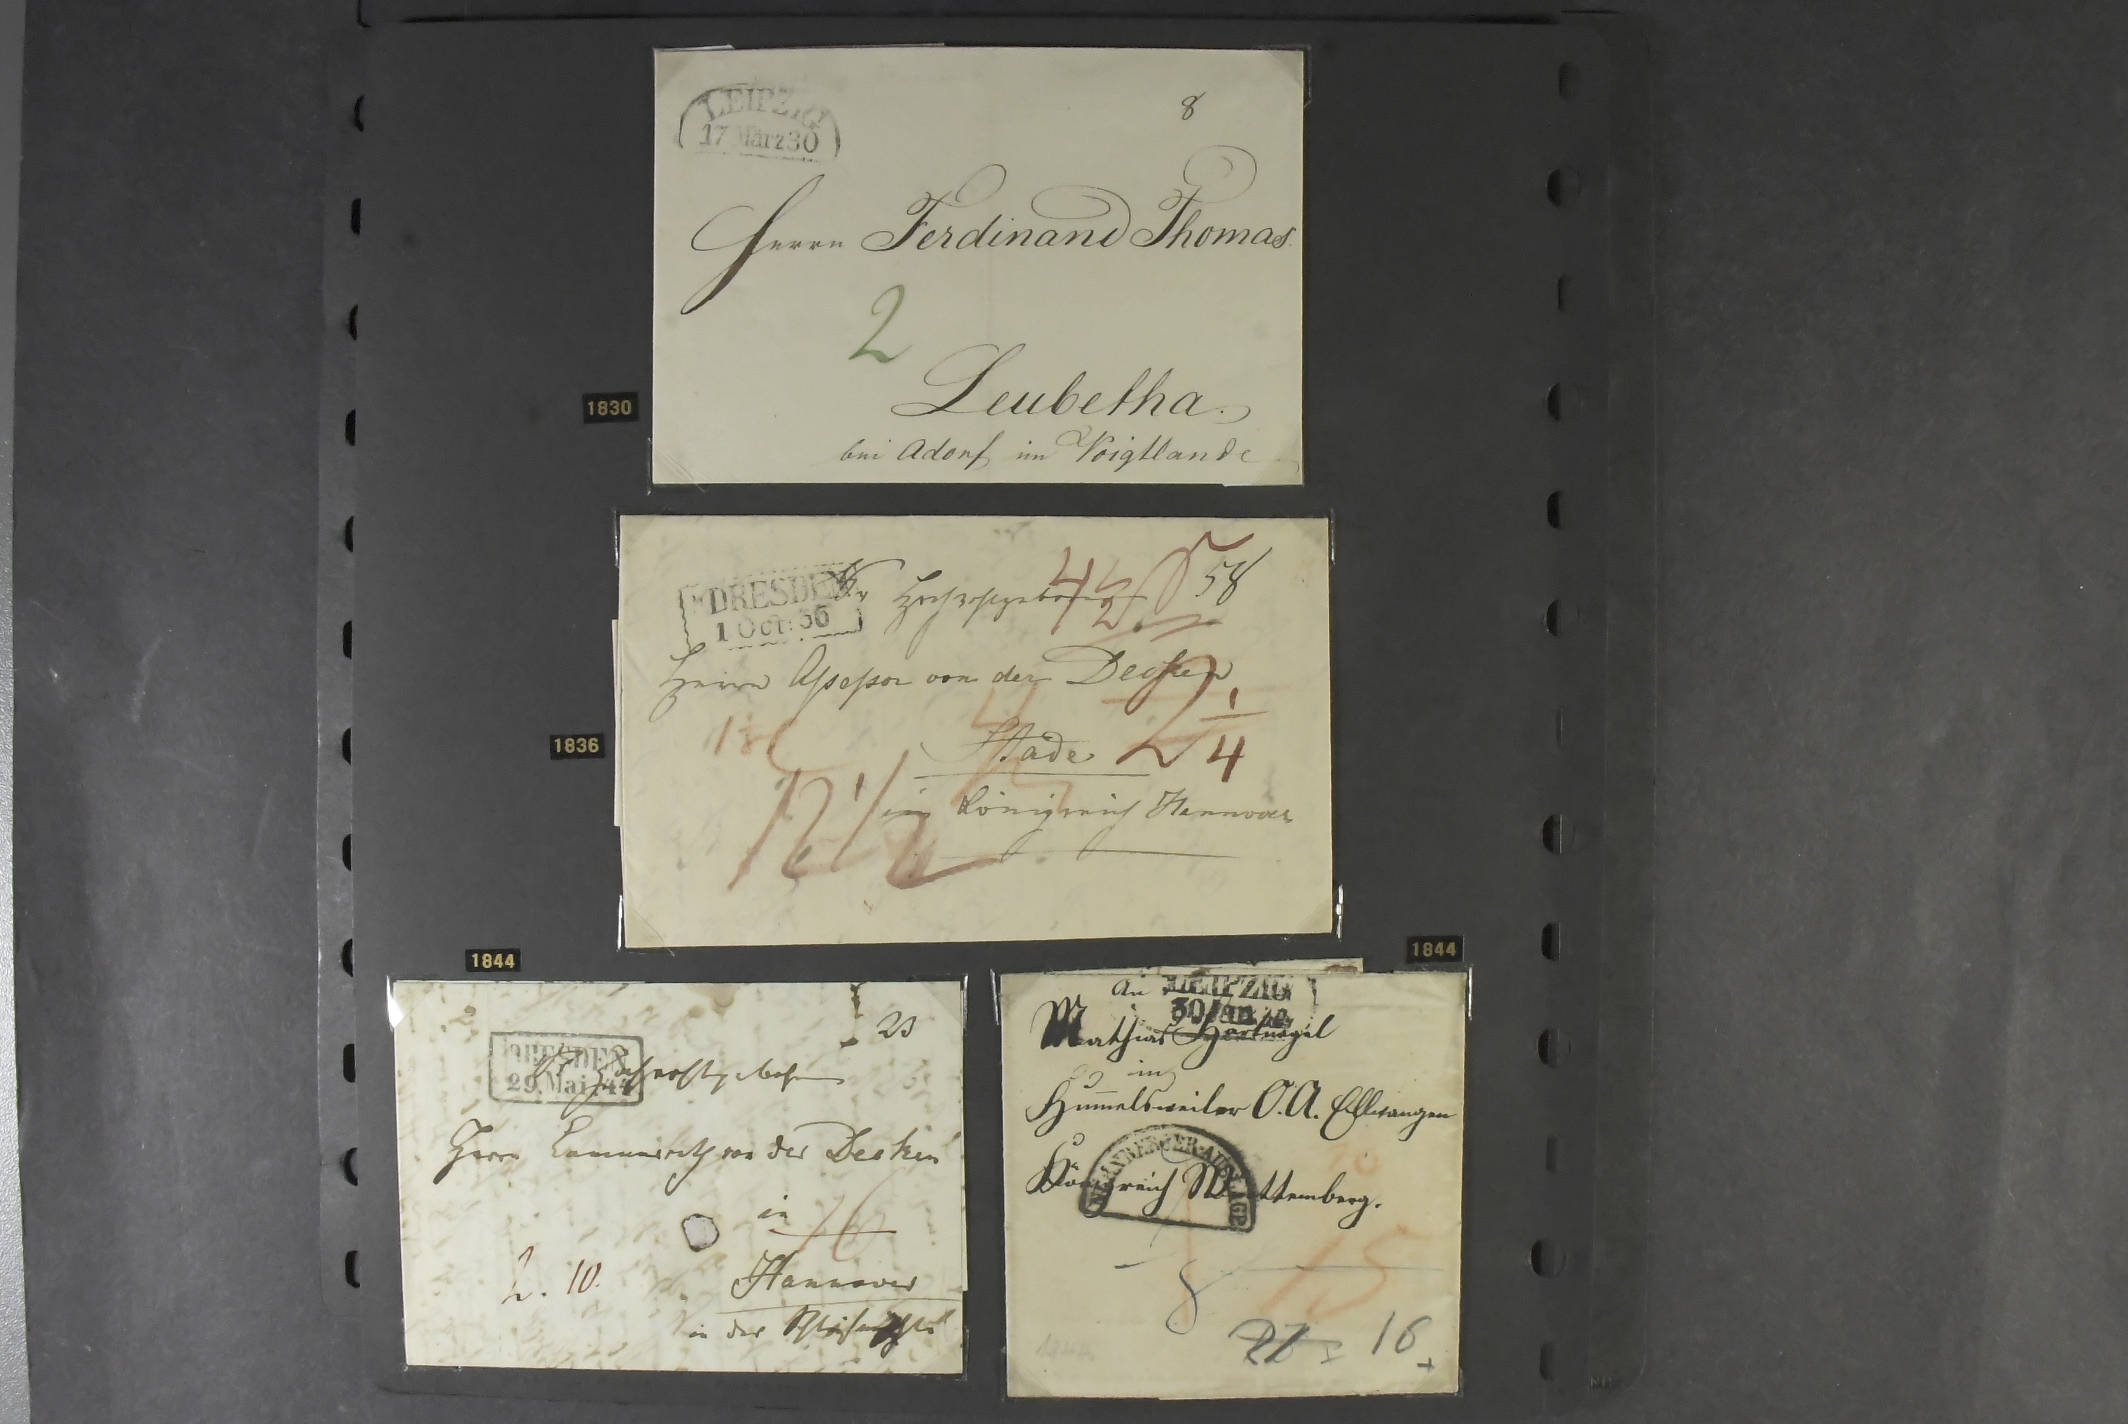 LEIPZIG
17 März 30
8
Herrn Ferdinand Thomas
2
Leubetha.
bei Adorf im Voigtlande
1830
DRESDEN
1 Oct: 36
58
Herrn Assessor von der Decken
2 1/4
Stade
im Königreich Hannover
1836
1844
DRESDEN
29. Mai. 44
23
Herrn von der Decken
in
16
2. 10.
Hannover
in der
1844
An
LEIPZIG
30 Jan
Mathias
in
Hummelsweiler O.A. Ellwangen
Königreich Württemberg.
8
15
16